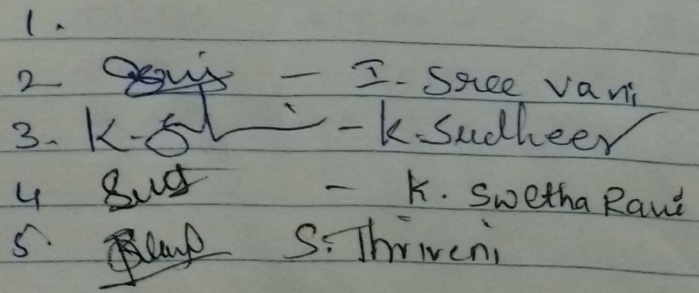 1.
2 - I. Sree vani
3. K. - K. Sudheer
4 - K. Swetha Rani
5. S. Thriveni